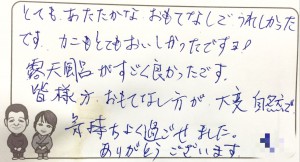 とても、あたたかな おもてなしで うれしかった
です。カニもとてもおいしかったですヨ♪
露天風呂がすごく良かったです。
皆様方 おもてなし方が 大変 自然で
気持ちよく過ごせました。
ありがとうございます